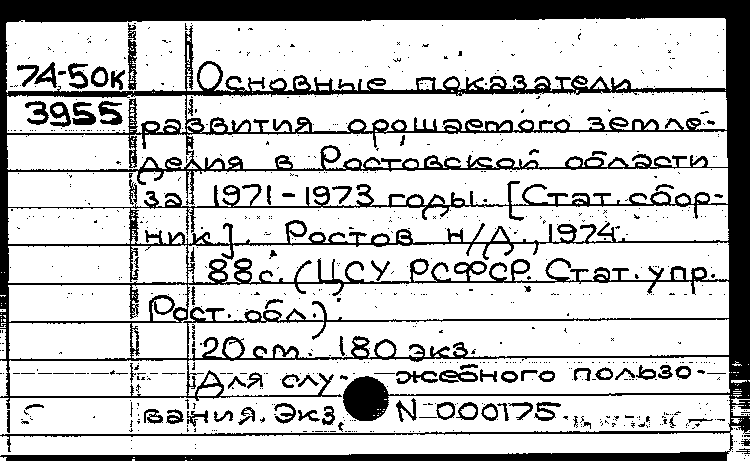 74-50к Основные показатели
3955 развития орошаемого земле-
делия в Ростовской области
за 1971-1973 годы. [Стат. сбор-
ник]. Ростов н/Д., 1974.
88с. (ЦСУ РСФСР. Стат. упр.
Рост. обл.).
20 см. 180 экз.
Для служебного пользо-
вания. Экз. N 000175.